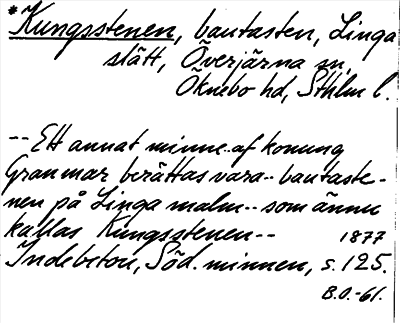 *Kungsstenen, bautasten, Linga
slätt, Överjärna sn,
Öknebo hd, Sthlm l.
-- Ett annat minne.. af konung
Granmar berättas vara.. bautaste-
nen på Linga malm.. som ännu
kallas Kungsstenen--
1877
Indebetou, Söd. minnen, s. 125.
B.O.-61.